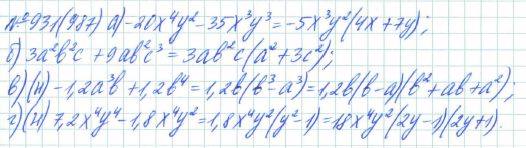 №931(987) а) -20x⁴y² - 35x³y³ = -5x³y²(4x + 7y);
б) 3a²b²c + 9ab²c³ = 3ab²c(a² + 3c²);
в) (н) -1,2a³b + 1,2b⁴ = 1,2b(b³ - a³) = 1,2b(b - a)(b² + ab + a²);
г) (н) 7,2x⁴y⁴ - 1,8x⁴y² = 1,8x⁴y²(y² - 1) = 1,8x⁴y²(2y - 1)(2y + 1).